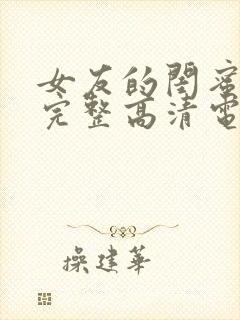 女友的閏蜜
完整高清電
操建華